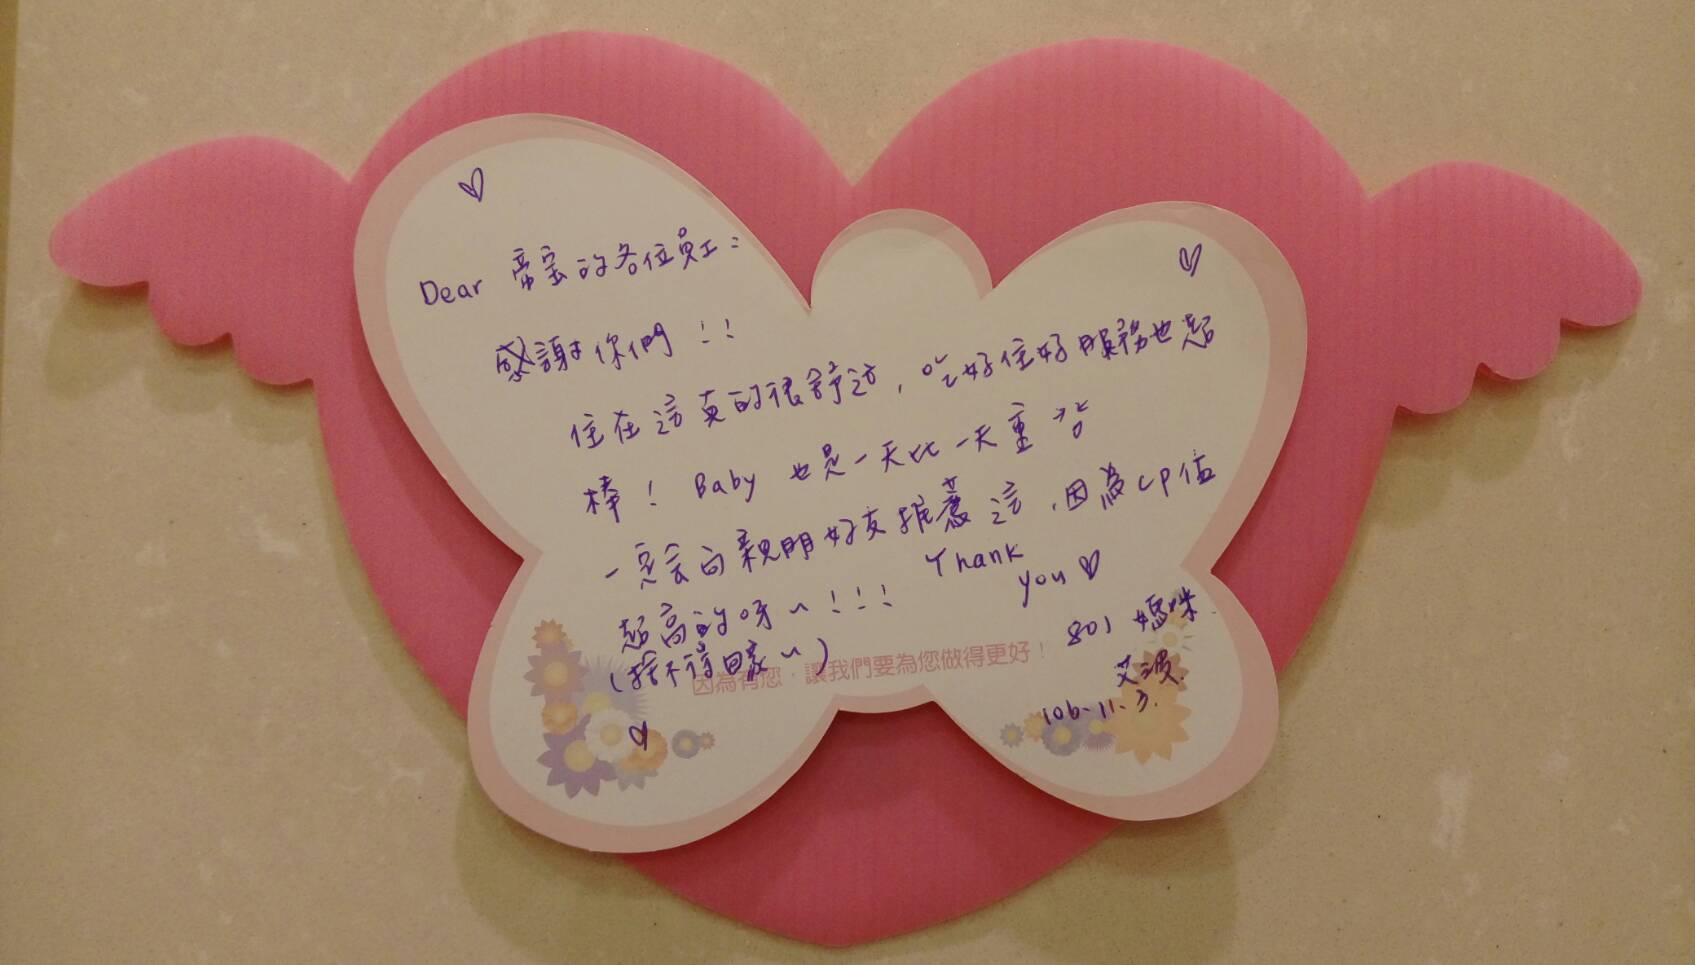 Dear 帝宝的各位員工：
感謝你們！！
住在這真的很舒適，吃好住好服務也超
棒！Baby 也是一天比一天重
一定會向親朋好友推薦這，因為CP值
超高的呀～！！！ Thank
you♡
(捨不得回家～)
因為有您，讓我們要為您做得更好！
801 媽咪
106.11.3.